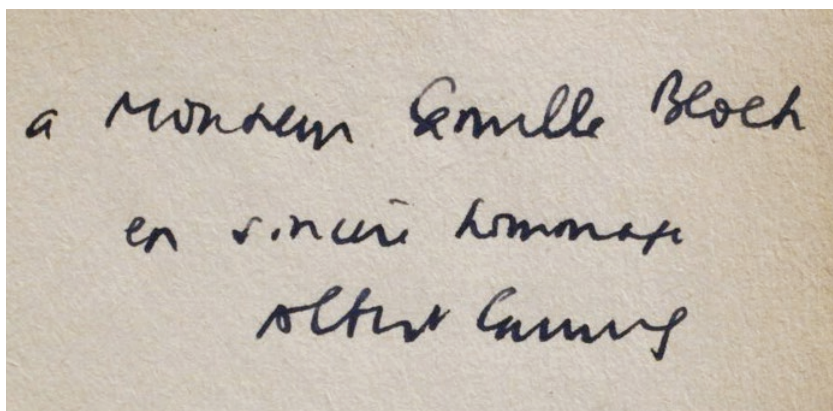 a Monsieur Camille Bloch
en sincère hommage
Albert Camus